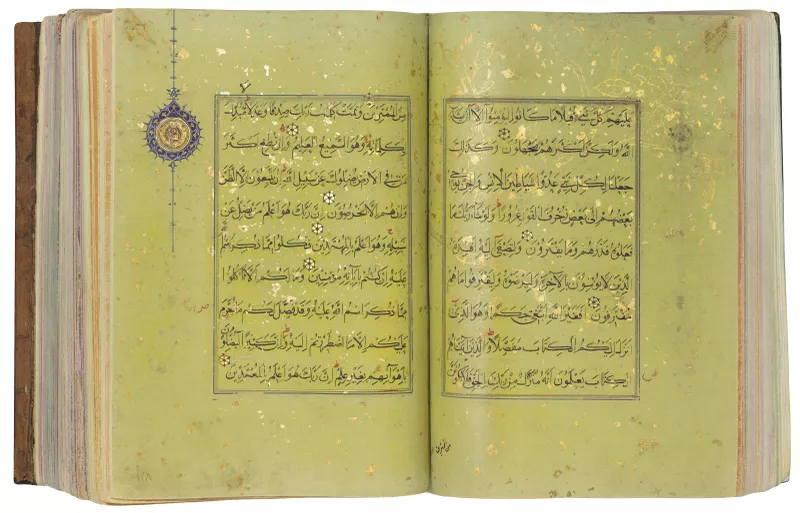 عليهم كل شيء قبلا ما كانوا ليؤمنوا إلا أن يشاء
الله ولكن أكثرهم يجهلون وكذلك
جعلنا لكل نبي عدوا شياطين الإنس والجن يوحي
بعضهم إلى بعض زخرف القول غرورا ولو شاء ربك ما
فعلوه فذرهم وما يفترون ولتصغى إليه أفئدة
الذين لا يؤمنون بالآخرة وليرضوه وليقترفوا ما هم
مقترفون أفغير الله أبتغي حكما وهو الذي
أنزل إليكم الكتاب مفصلا والذين آتيناهم
الكتاب يعلمون أنه منزل من ربك بالحق فلا تكونن
من الممترين
من الممترين وتمت كلمت ربك صدقا وعدلا لا مبدل
لكلماته وهو السميع العليم وإن تطع أكثر
من في الأرض يضلوك عن سبيل الله إن يتبعون إلا الظن
وإن هم إلا يخرصون إن ربك هو أعلم من يضل عن
سبيله وهو أعلم بالمهتدين فكلوا مما ذكر اسم الله
عليه إن كنتم بآياته مؤمنين وما لكم ألا تأكلوا
مما ذكر اسم الله عليه وقد فصل لكم ما حرم
عليكم إلا ما اضطررتم إليه وإن كثيرا ليضلون
بأهوائهم بغير علم إن ربك هو أعلم بالمعتدين